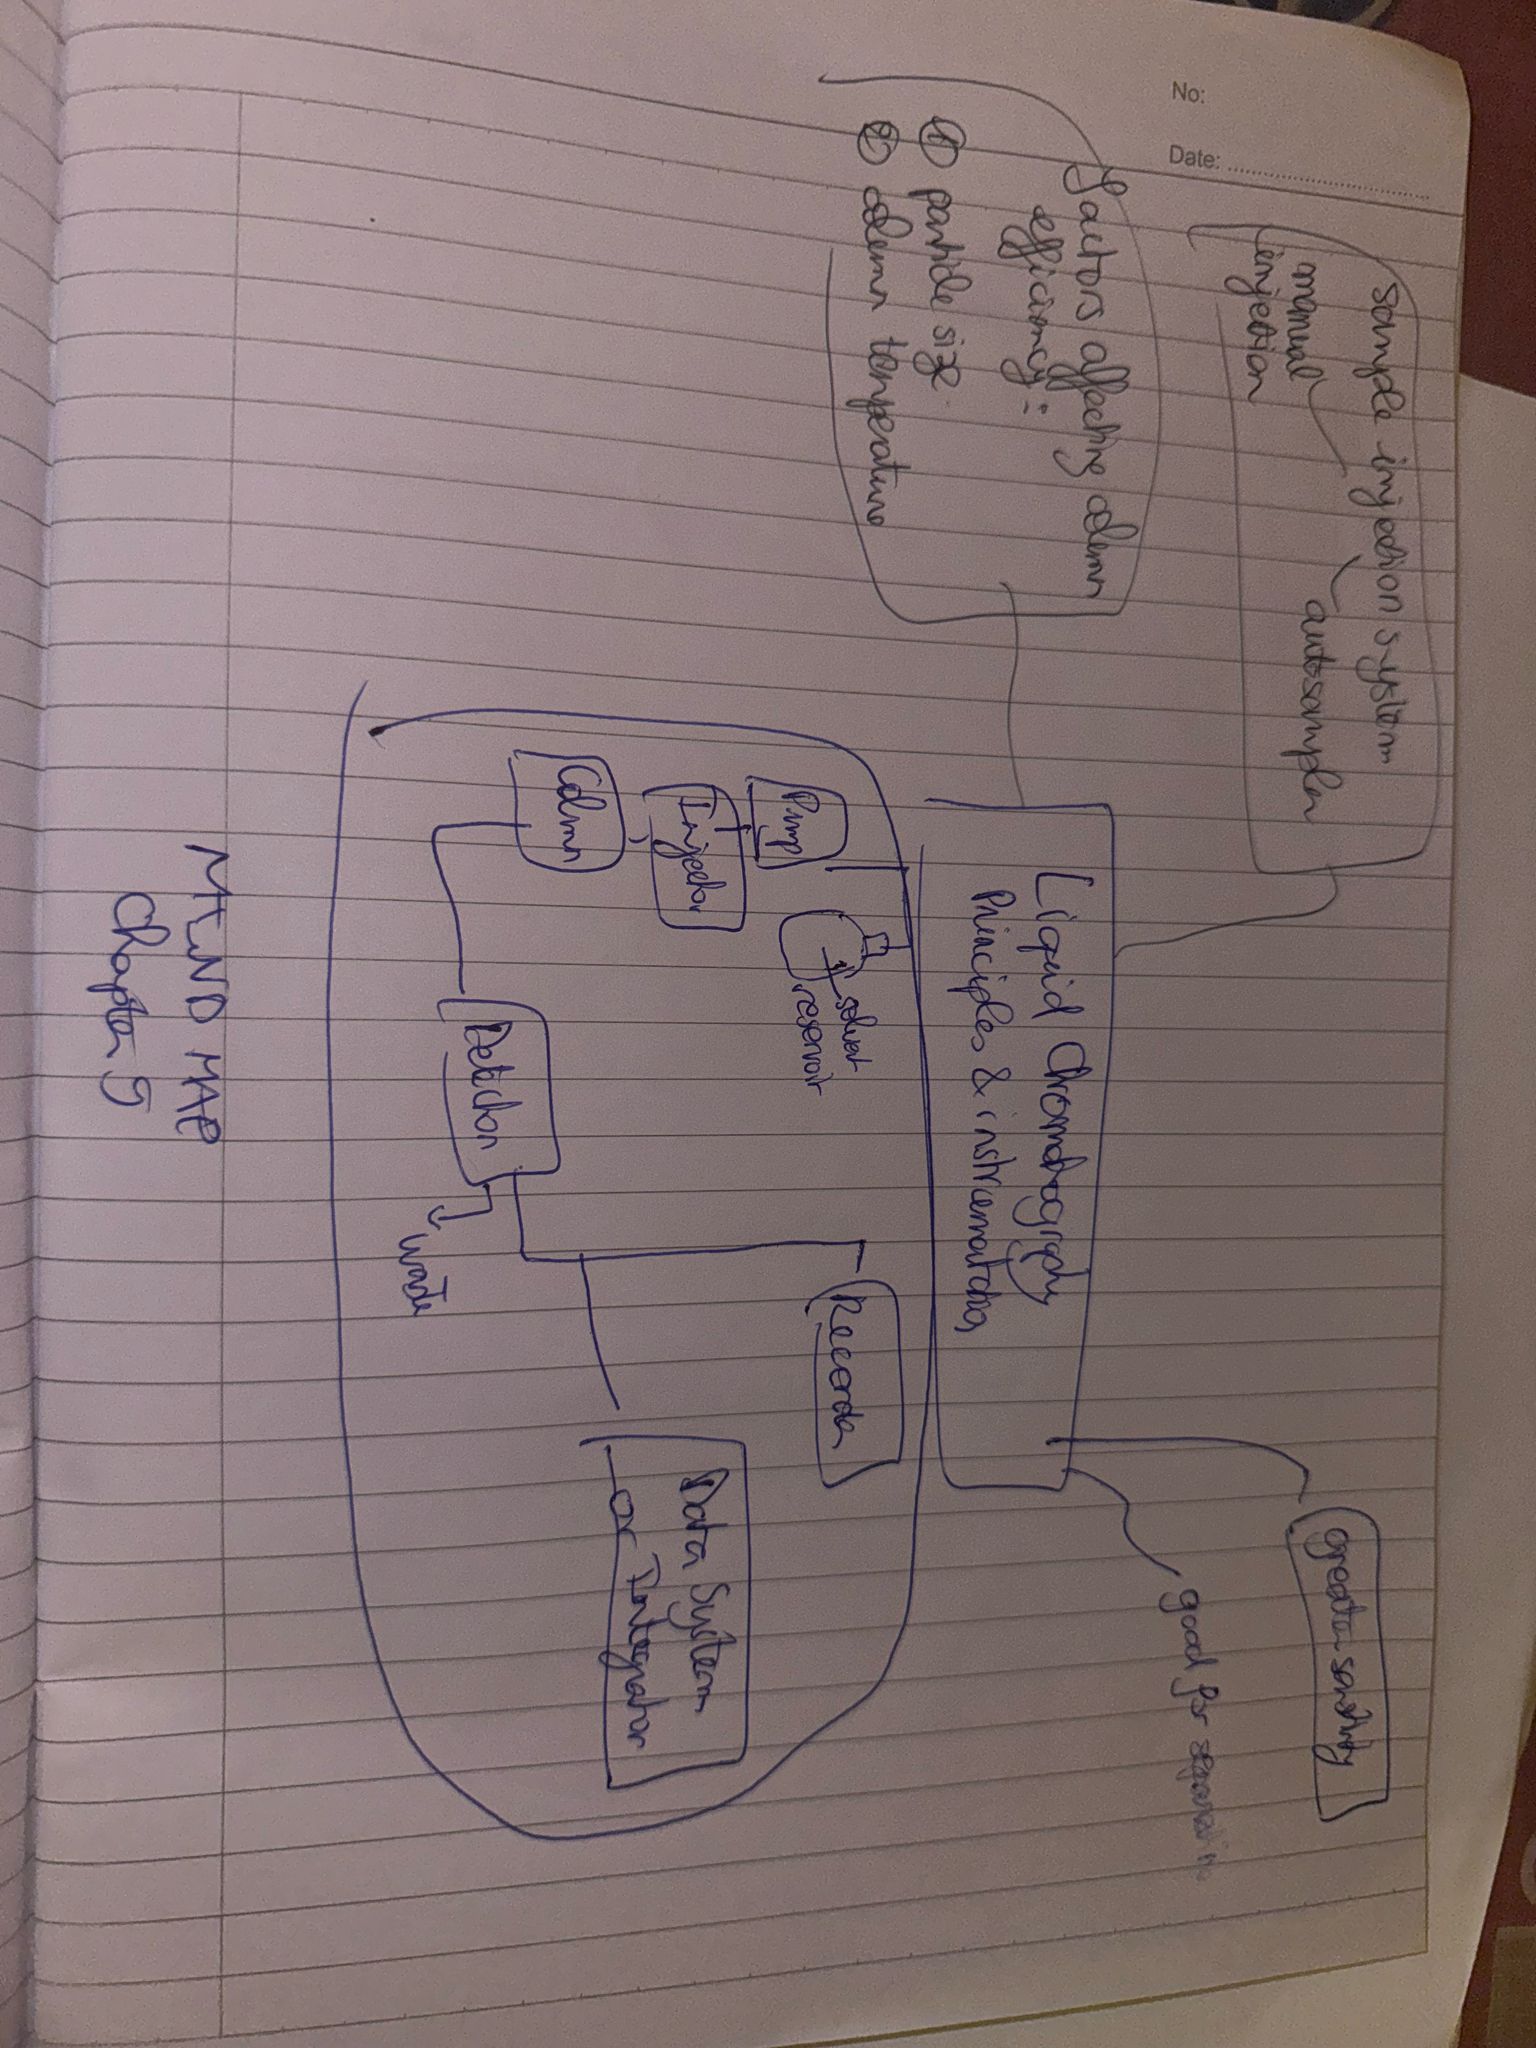 sample injection system
manual
injection
autosampler
greater sensitivity
good for separation
No:
Date:
Factors affecting column
efficiency:
① particle size
② column temperature
Liquid Chromatography
Principles & instrumentation
solvent
reservoir
Pump
Injector
Column
Recorder
Data System
or Integrator
Detector
waste
MIND MAP
Chapter 9